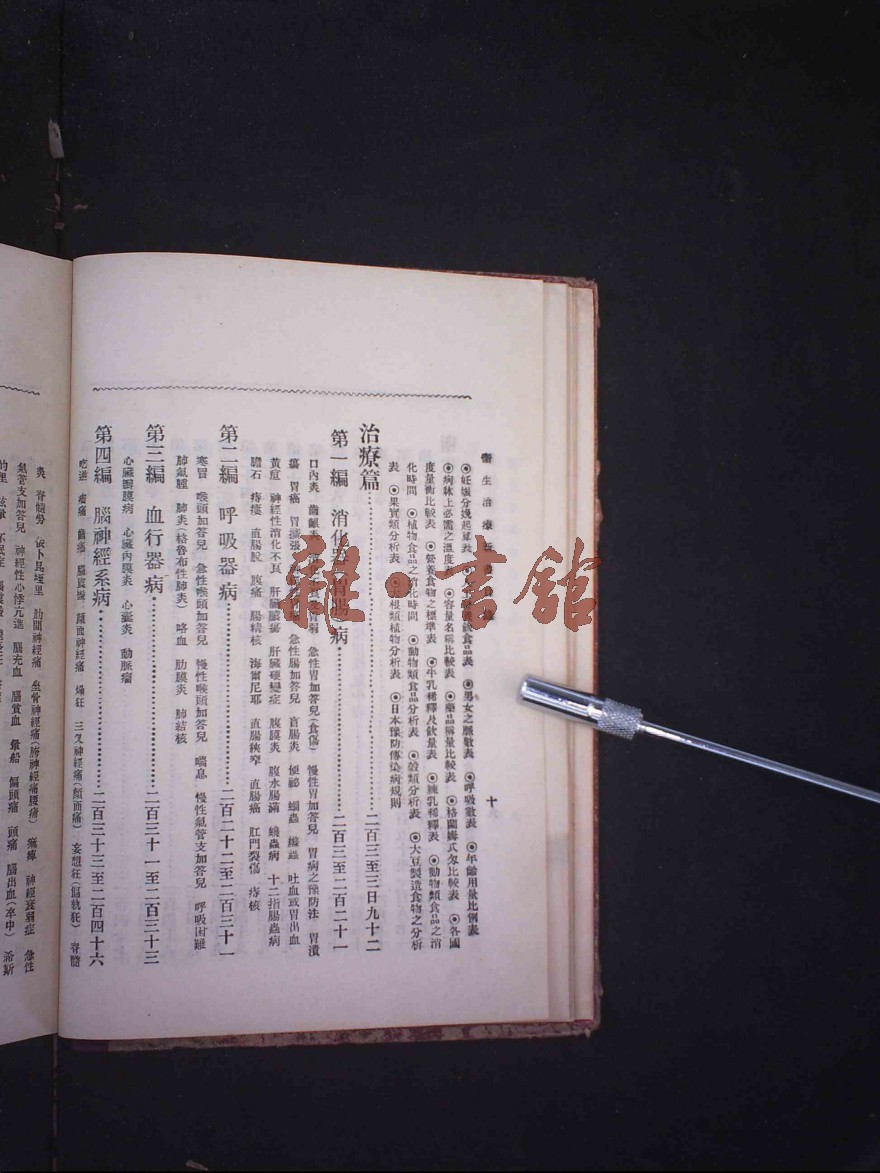 衞生治療新
十
◉妊娠分娩起算表 食品表 ◉男女之脈數表 ◉呼吸數表 ◉年齡用量比例表
◉病牀上必需之溫度表 ◉容量名稱比較表 ◉藥品稱量比較表 ◉格蘭姆瓦匁比較表 ◉各國
度量衡比較表 ◉營養食物之標準表 ◉牛乳稀釋及飲量表 ◉煉乳稀釋表 ◉動物類食品之消
化時間 ◉植物食品之消化時間 ◉動物類食品分析表 ◉穀類分析表 ◉大豆製造食物之分析
表 ◉果實類分析表 根類植物分析表 ◉日本豫防傳染病規則
治療篇 二百三至三日九十二
第一編 消化器 胃腸病 二百三至二百二十一
口內炎 齒齦炎 胃弱 急性胃加答兒(食傷) 慢性胃加答兒 胃病之預防法 胃潰
瘍 胃癌 胃擴張 急性腸加答兒 盲腸炎 便祕 蛔蟲 縧蟲 吐血或胃出血
黃疸 神經性消化不良 肝臟膿瘍 肝臟硬變症 腹膜炎 腹水腸滿 蟯蟲病 十二指腸蟲病
膽石 痔瘻 直腸脫 腹痛 腸精核 海爾尼耶 直腸狹窄 直腸癌 肛門裂傷 痔核
第二編 呼吸器病 二百二十二至二百三十一
寒冒 喉頭加答兒 急性喉頭加答兒 慢性喉頭加答兒 喘息 慢性氣管支加答兒 呼吸困難
肺氣腫 肺炎(格魯布性肺炎) 咯血 肋膜炎 肺結核
第三編 血行器病 二百三十一至二百三十三
心臟瓣膜病 心臟內膜炎 心囊炎 動脈瘤
第四編 腦神經系病 二百三十三至二百四十六
吃逆 齒痛 腦貧血 顏面神經痛 燥狂 三叉神經痛(顏面痛) 妄想狂(偏執狂) 脊髓
炎 脊髓勞 依卜昆垤里 肋間神經痛 坐骨神經痛(胯神經痛腰痛) 痲痺 神經衰弱症 急性
氣管支加答兒 神經性心悸亢進 腦充血 腦貧血 暈船 偏頭痛 頭痛 腦出血(卒中) 希斯
的里 眩暈 不眠症
龍·書館